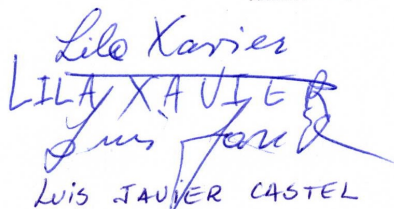 Lila Xavier
LILA XAVIER
Luis Javier
LUIS JAVIER CASTEL